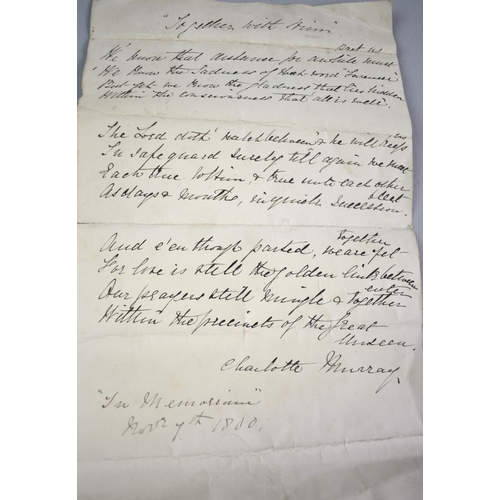 "Together with Him"
We know that distance for awhile must part us
We know the sadness of that word "Farewell"
But yet we know the gladness that lies hidden
Within the consciousness that all is well.
The Lord doth watch between & he will keep us
In safeguard surely till again we meet
Each true to Him, & true unto each other
As days & months, in quick succession fleet.
And e'en though parted, we are yet together
For love is still the golden link between
Our prayers still mingle & together enter
Within the precincts of the great
Unseen.
Charlotte Murray.
"In Memoriam"
Novr 7th